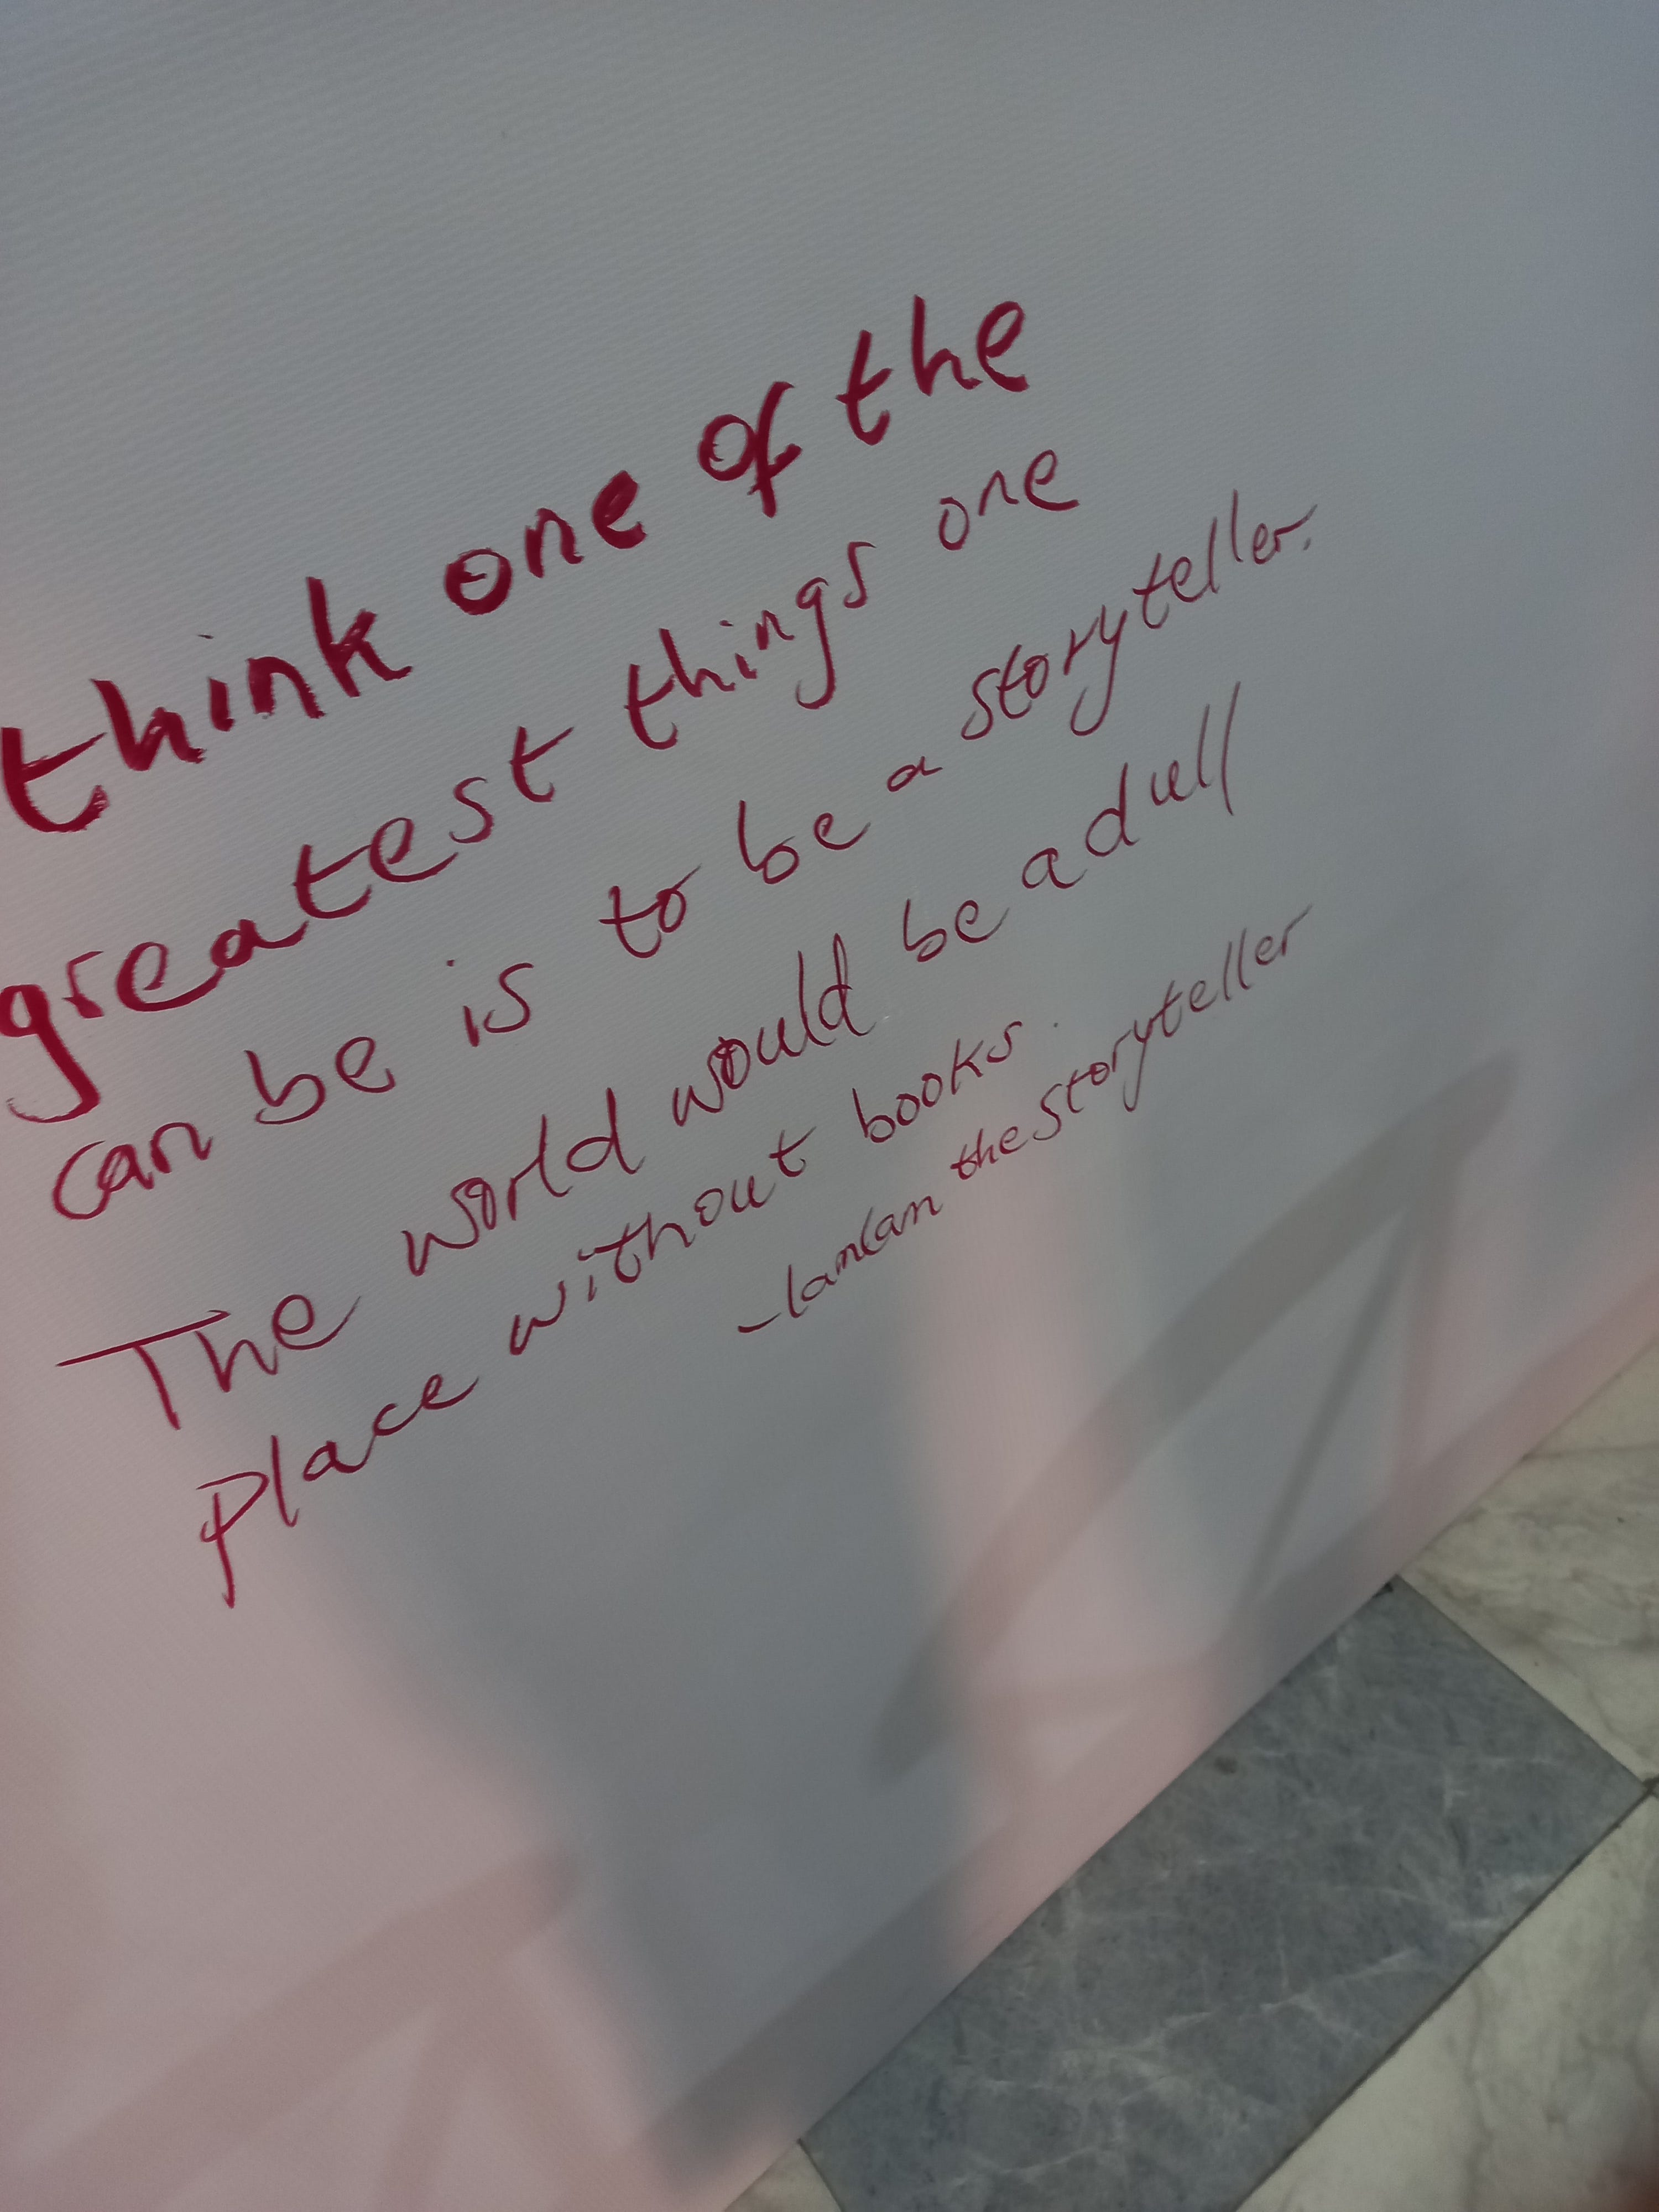 think one of the
greatest things one
can be is to be a storyteller.
The world would be a dull
place without books.
- lamlan the storyteller